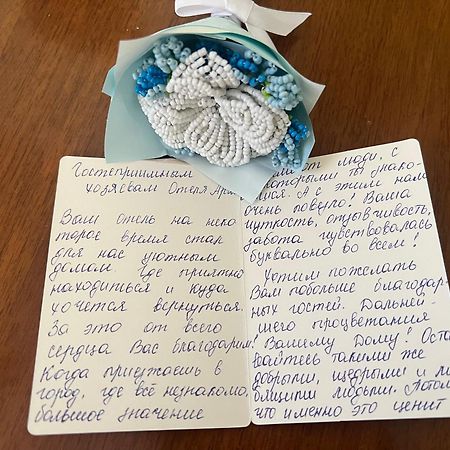 Гостеприимным
хозяевам Отеля
Ваш отель на неко
торое время стал
для нас уютным
домом. Где приятно
находиться и куда
хочется вернуться.
За это от всего
сердца Вас благодарим!
Когда приезжаешь в
город, где всё незнакомо,
большое значение
люди, с
которыми ты знако-
мися. А с этим нам
очень повезло! Ваша
чуткость, отзывчивость,
забота чувствовалась
буквально во всем!
Хотим пожелать
Вам побольше благодар-
ных гостей. Дальней-
шего процветания
Вашему Дому! Оста
вайтесь такими же
добрыми, щедрыми и лю
бящими людьми.
что именно это ценит